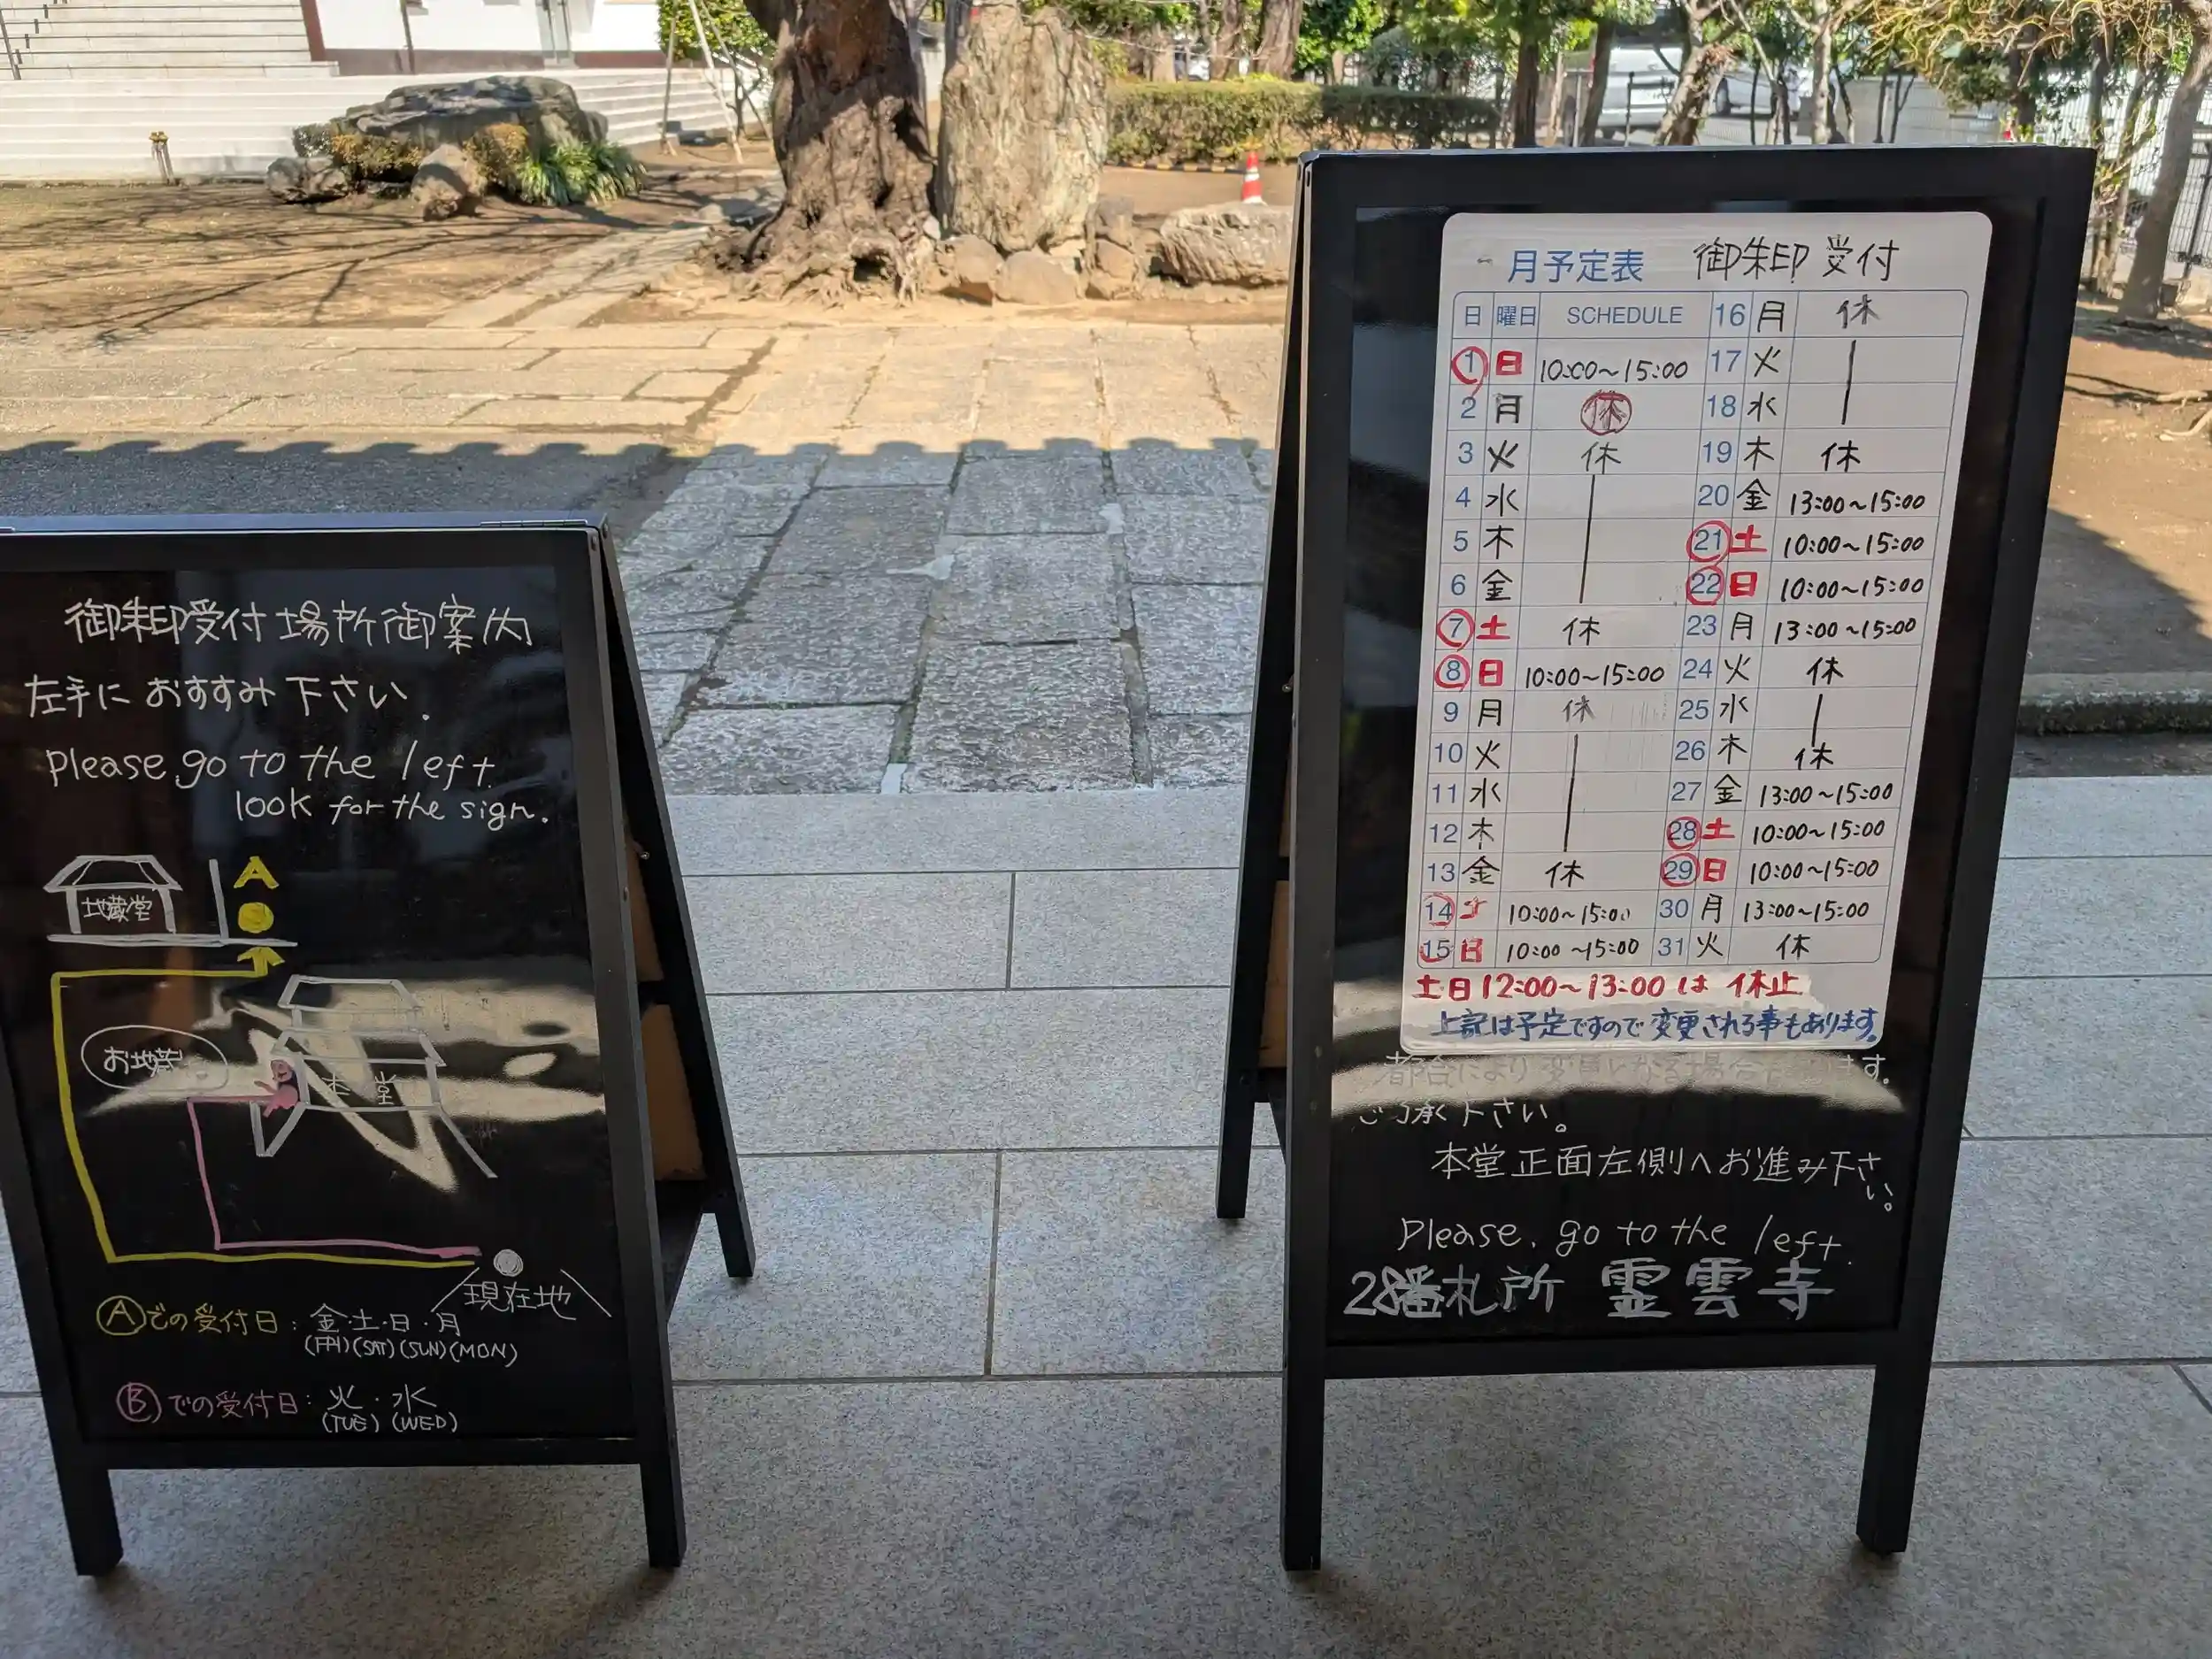 御朱印受付場所御案内
左手に おすすみ 下さい.
please go to the left.
look for the sign.
A
地蔵堂
お地蔵
本堂
現在地
Ⓐでの受付日: 金・土・日・月
(FRI)(SAT)(SUN)(MON)
Ⓑでの受付日: 火・水
(TUE)(WED)
月予定表 御朱印 受付
日 曜日 SCHEDULE
1 日 10:00~15:00
2 月 休
3 火 休
4 水
5 木
6 金
7 土 休
8 日 10:00~15:00
9 月 休
10 火
11 水
12 木
13 金 休
14 土 10:00~15:00
15 日 10:00~15:00
16 月 休
17 火
18 水
19 木 休
20 金 13:00~15:00
21 土 10:00~15:00
22 日 10:00~15:00
23 月 13:00~15:00
24 火 休
25 水
26 木 休
27 金 13:00~15:00
28 土 10:00~15:00
29 日 10:00~15:00
30 月 13:00~15:00
31 火 休
土日12:00~13:00は 休止
上記は予定ですので変更される事もあります。
都合により変更となる場合
ご了承下さい。
本堂正面左側へお進み下さい。
Please. go to the left.
28番札所 霊雲寺